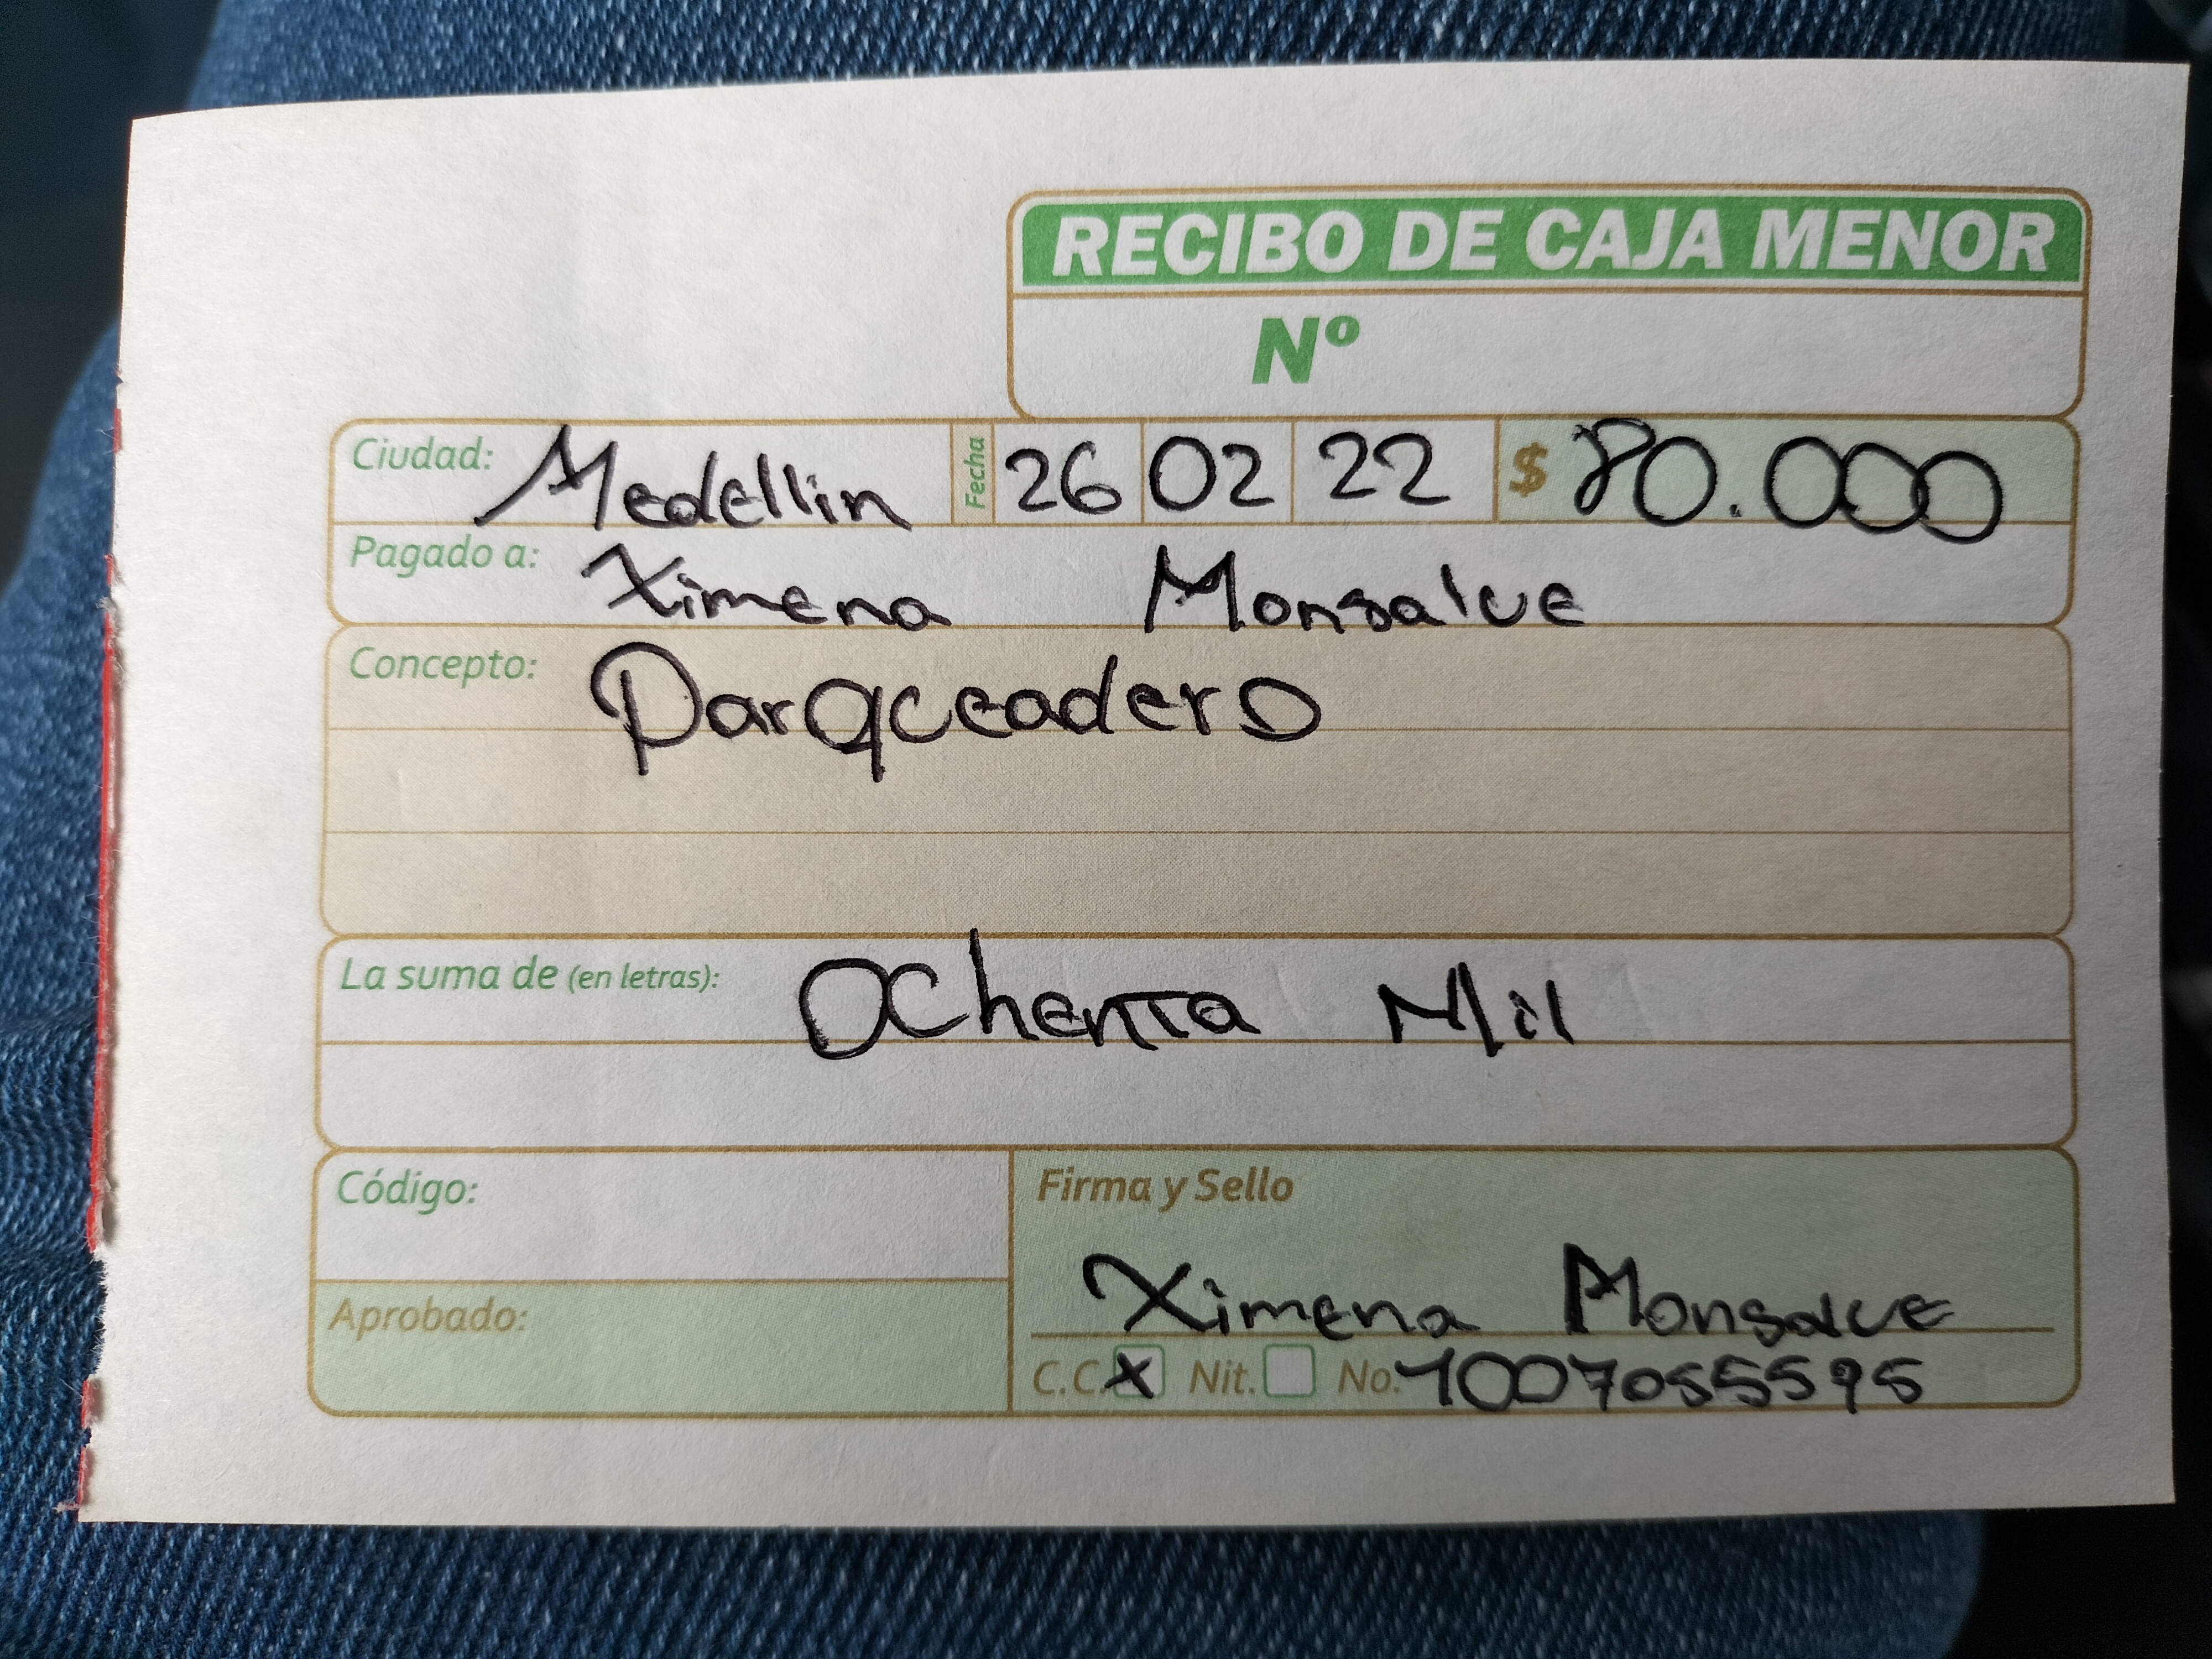 RECIBO DE CAJA MENOR
Nº
Ciudad: Medellin Fecha 26 02 22 $ 80.000
Pagado a: Ximena Monsalve
Concepto: Parqueadero
La suma de (en letras): Ochenta Mil
Código:
Firma y Sello
Aprobado:
Ximena Monsalve
C.C. X Nit. No. 1007055595